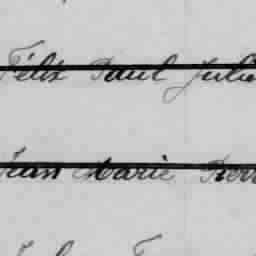 Félix Paul Juli
Jean Marie